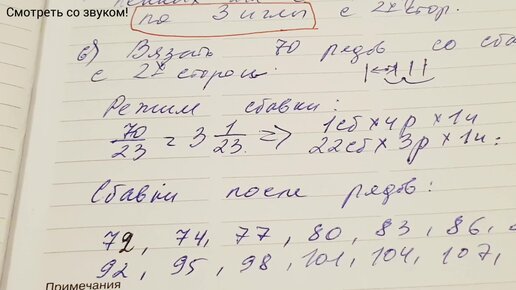 Смотреть со звуком!
по 3 иглы с 2х стор.
6) Вязать 70 рядов со сба
с 2х сторон:
Режим сбавки:
70/23 = 3 1/23 => 1сб × 4р × 1и
22сб × 3р × 1и.
Сбавки после рядов:
72, 74, 77, 80, 83, 86,
92, 95, 98, 101, 104, 107,
Примечания